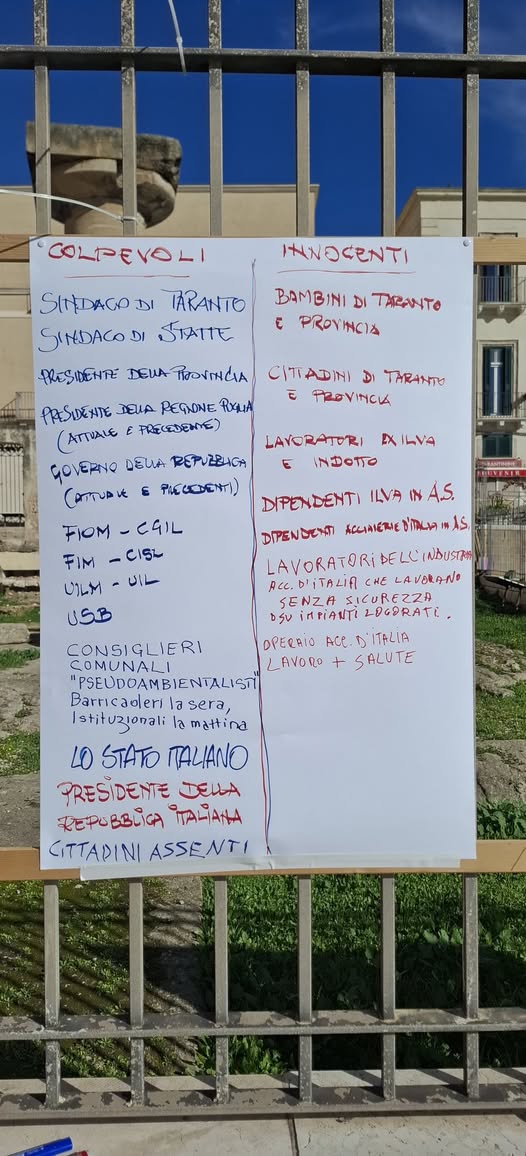 COLPEVOLI
SINDACO DI TARANTO
SINDACO DI STATTE
PRESIDENTE DELLA PROVINCIA
PRESIDENTE DELLA REGIONE PUGLIA
(ATTUALE E PRECEDENTE)
GOVERNO DELLA REPUBBLICA
(ATTUALE E PRECEDENTI)
FIOM - CGIL
FIM - CISL
UILM - UIL
USB
CONSIGLIERI
COMUNALI
"PSEUDOAMBIENTALISTI"
Barricaderi la sera,
Istituzionali la mattina
LO STATO ITALIANO
PRESIDENTE DELLA
REPUBBLICA ITALIANA
CITTADINI ASSENTI
INNOCENTI
BAMBINI DI TARANTO
E PROVINCIA
CITTADINI DI TARANTO
E PROVINCIA
LAVORATORI EX ILVA
E INDOTTO
DIPENDENTI ILVA IN A.S.
DIPENDENTI ACCIAIERIE D'ITALIA IN A.S.
LAVORATORI DELL'INDUSTRIA
ACC. D'ITALIA CHE LAVORANO
SENZA SICUREZZA
SU IMPIANTI LOGORATI.
OPERAIO ACC. D'ITALIA
LAVORO + SALUTE